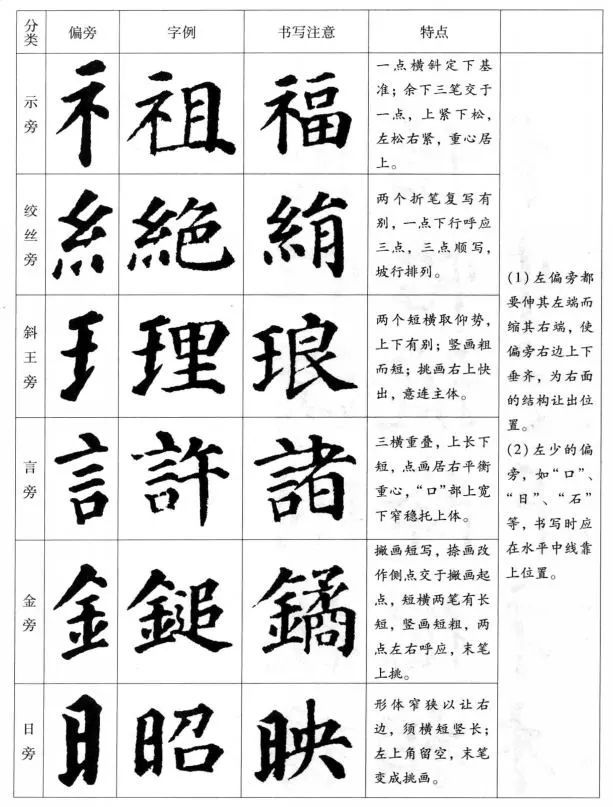 分类 偏旁 字例 书写注意 特点
示旁 礻 祖 福
一点横斜定下基
准；余下三笔交于
一点，上紧下松，
左松右紧，重心居
上。
绞丝旁 糹 絶 絹
两个折笔复写有
别，一点下行呼应
三点，三点顺写，
坡行排列。
斜王旁 𤣩 理 琅
两个短横取仰势，
上下有别；竖画粗
而短；挑画右上快
出，意连主体。
言旁 訁 許 諸
三横重叠，上长下
短，点画居右平衡
重心，“口”部上宽
下窄稳托上体。
金旁 釒 鎚 鐍
撇画短写，捺画改
作侧点交于撇画起
点，短横两笔有长
短，竖画短粗，两
点左右呼应，末笔
上挑。
日旁 日 昭 映
形体窄狭以让右
边，须横短竖长；
左上角留空，末笔
变成挑画。
(1)左偏旁都
要伸其左端而
缩其右端，使
偏旁右边上下
垂齐，为右面
的结构让出位
置。
(2)左少的偏
旁，如“口”、
“日”、“石”
等，书写时应
在水平中线靠
上位置。